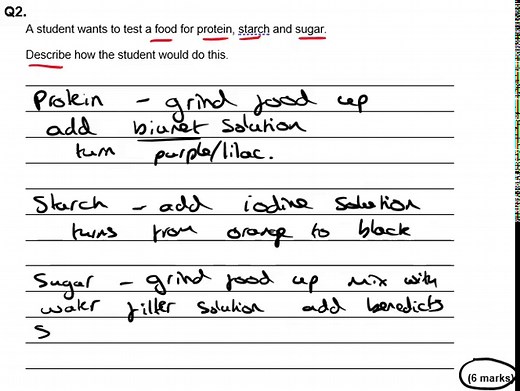 Q2.
A student wants to test a food for protein, starch and sugar.
Describe how the student would do this.
Protein - grind food up
add biuret solution
turn purple/lilac.
Starch - add iodine solution
turns from orange to black
Sugar - grind food up mix with
water filter solution add benedicts
s
(6 marks)